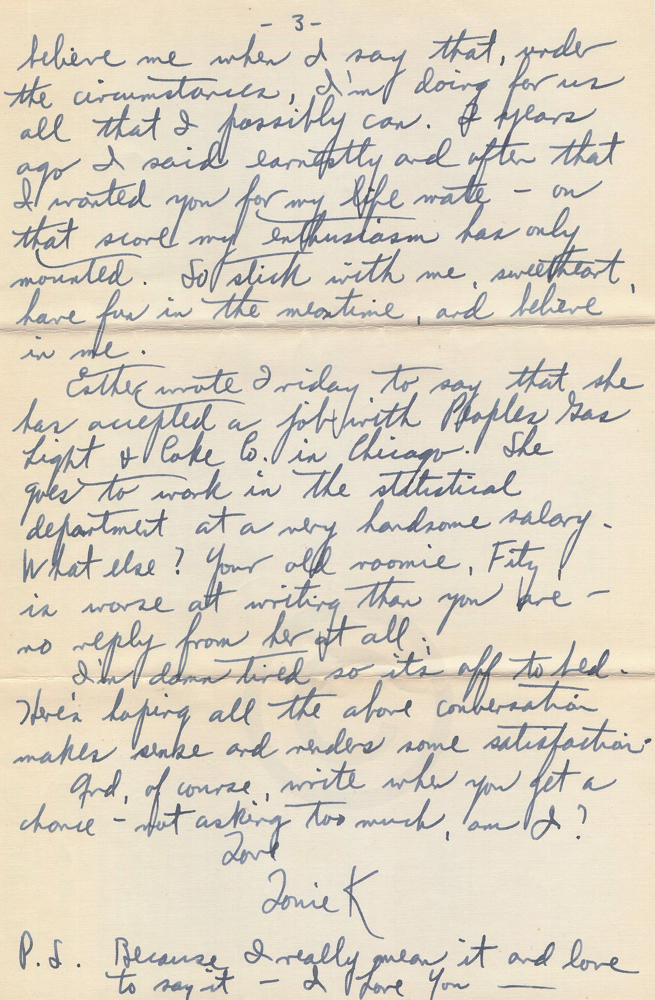 - 3 -
believe me when I say that, under
the circumstances, I'm doing for us
all that I possibly can. 2 years
ago I said earnestly and often that
I wanted you for my life mate - on
that score my enthusiasm has only
mounted. So stick with me, sweetheart,
have fun in the meantime, and believe
in me.
Esther wrote Friday to say that she
has accepted a job with Peoples Gas
Light & Coke Co. in Chicago. She
goes to work in the statistical
department at a very handsome salary.
What else? Your old roomie, Fitz,
is worse at writing than you are -
no reply from her at all.
I'm damn tired so it's off to bed.
Here's hoping all the above conversation
makes sense and renders some satisfaction.
And, of course, write when you get a
chance - not asking too much, am I?
Love
K
P.S. Because I really mean it and love
to say it - I Love You —